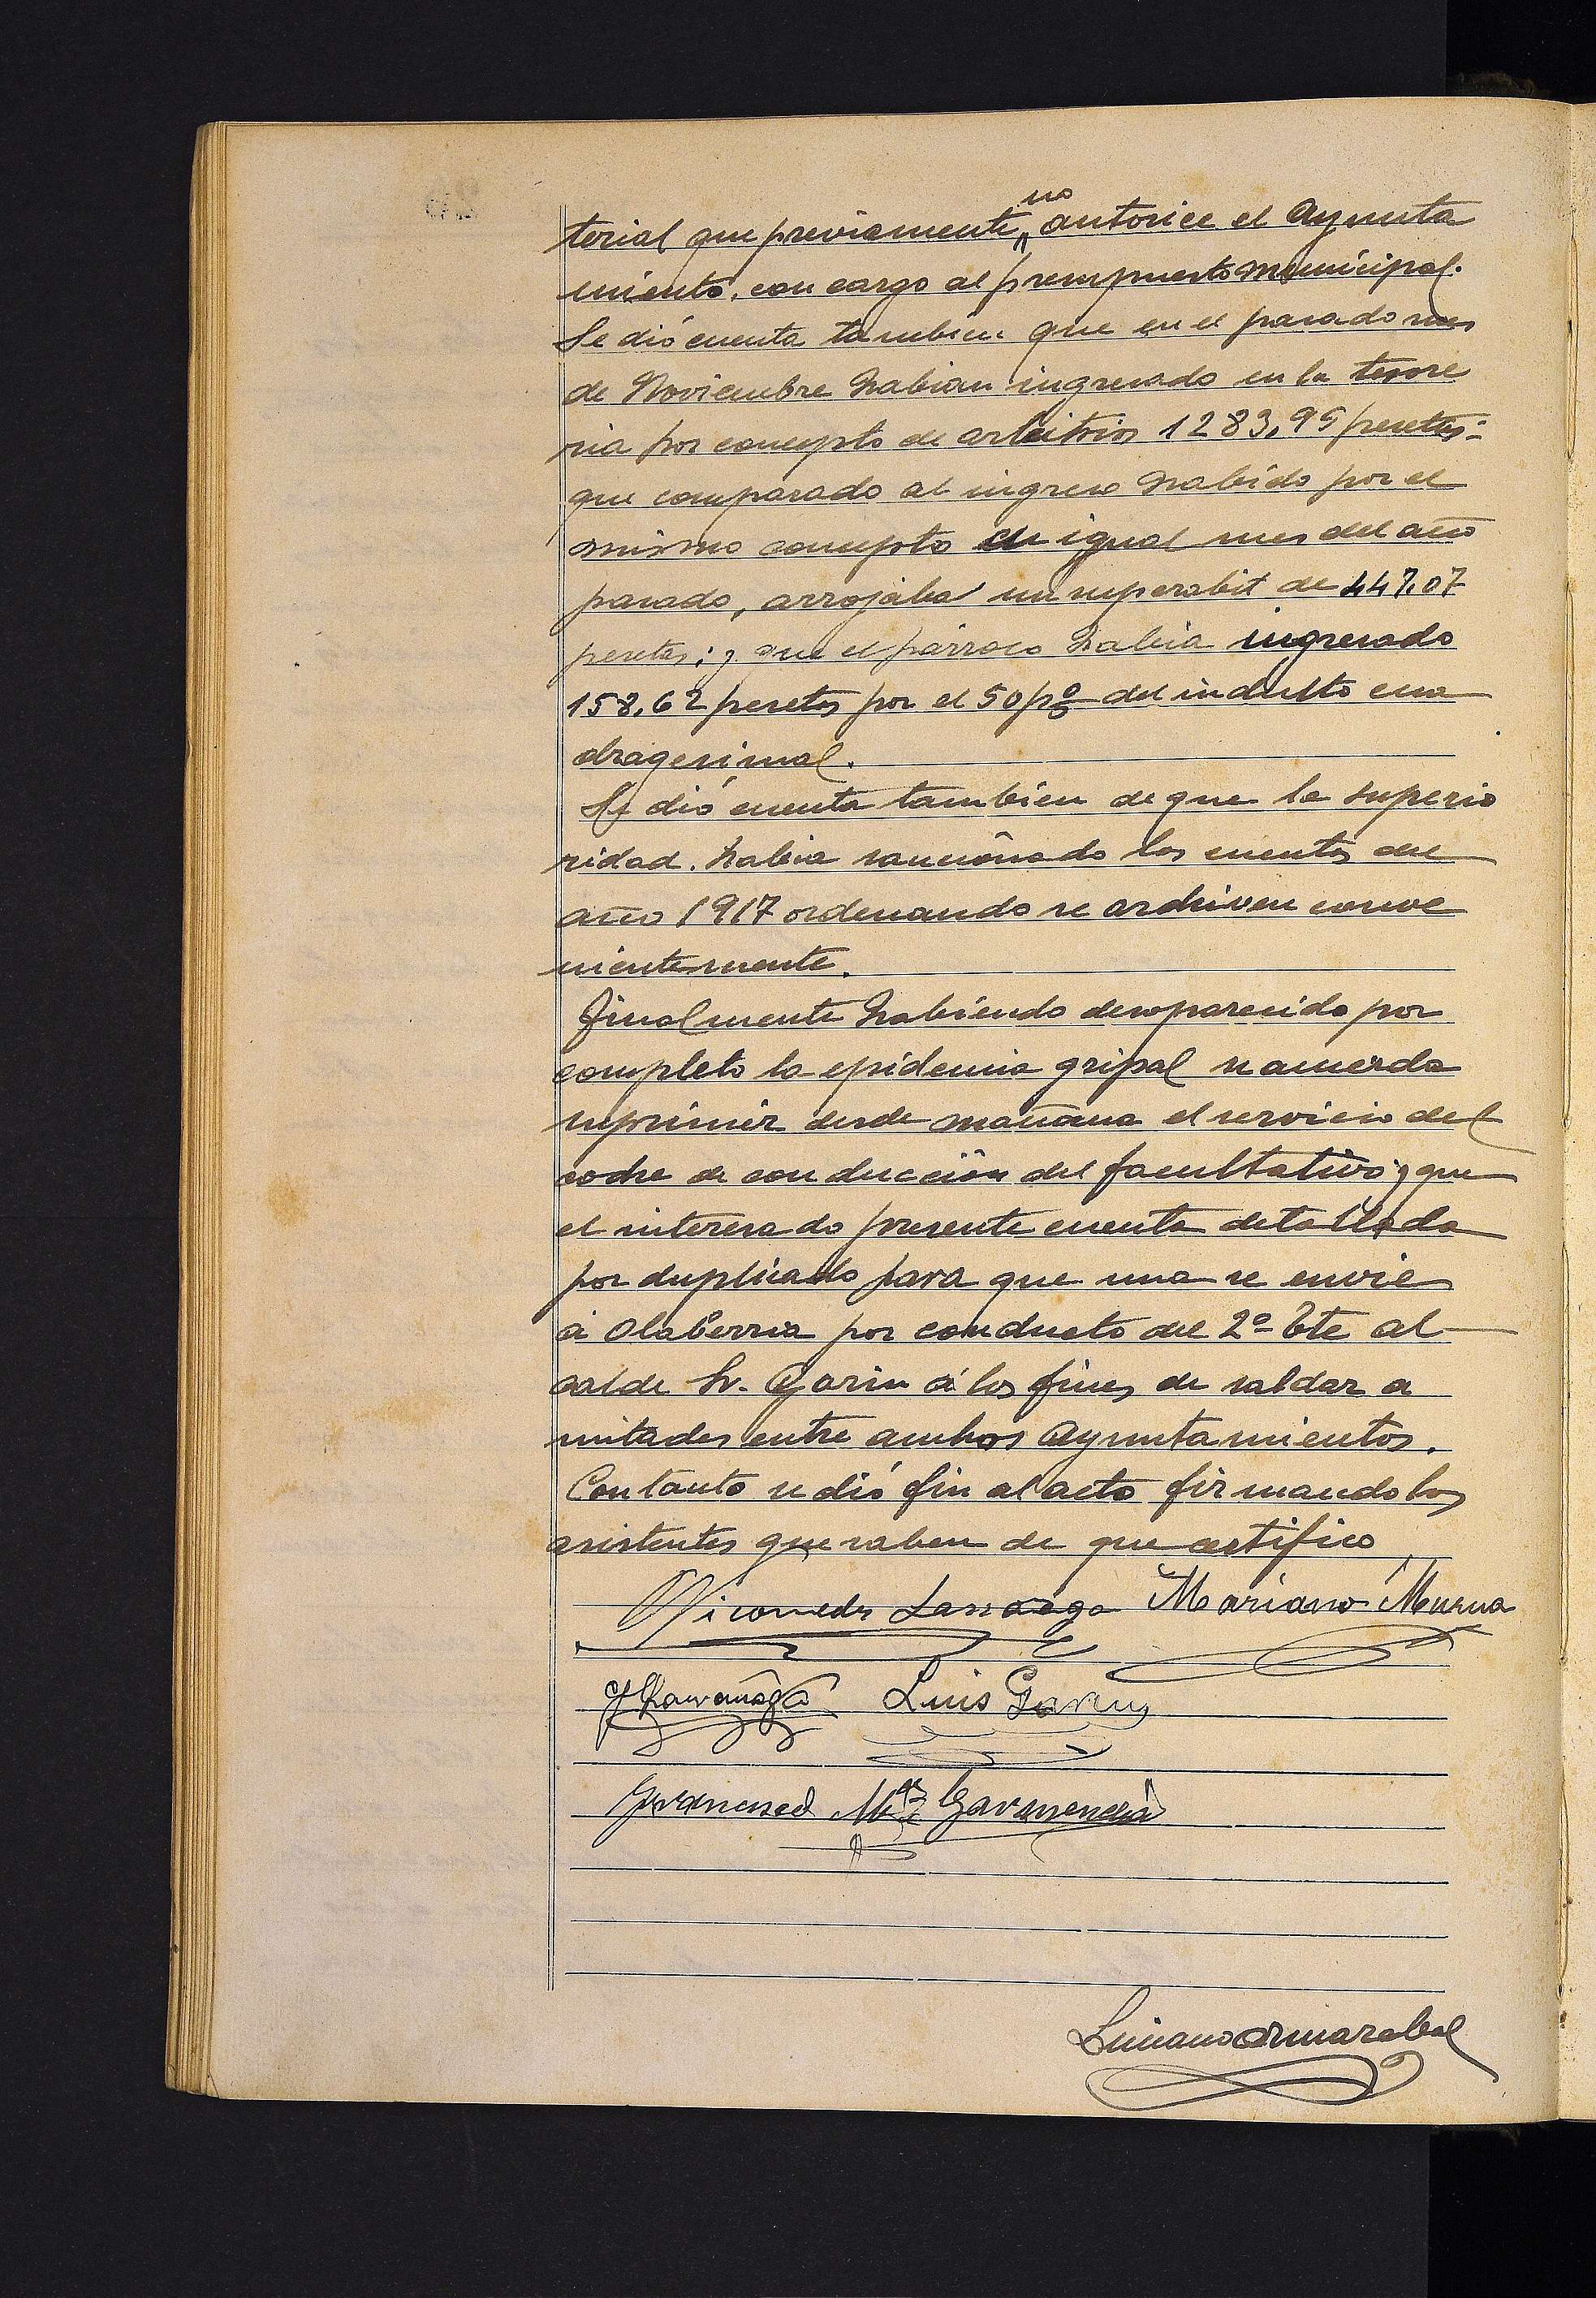 no
torial que previamente autorice el Ayunta
miento, con cargo al presupuesto municipal.
Se dió cuenta tambien que en el pasado mes
de Noviembre habian ingresado en la tesore
ria por concepto de arbitrios 1283,95 pesetas;
que comparado al ingreso habido por el
mismo concepto en igual mes del año
pasado, arrojaba un superabit de 447,07
pesetas; y que el párroco habia ingresado
158,62 pesetas por el 50 p% del indulto cua
dragesimal.
Se dió cuenta tambien de que la superio
ridad. habia sancionado las cuentas del
año 1917 ordenando se archiven conve
nientemente.
Finalmente habiendo desaparecido por
completo la epidemia gripal se acuerda
suprimir desde mañana el servicio del
coche de conducción del facultativo; y que
el interesado presente cuenta detallada
por duplicado para que una se envie
á Olaberria por conducto del 2º Tte al
calde Sr. Garin á los fines de saldar a
mitades entre ambos Ayuntamientos.
Con tanto se dió fin al acto firmando los
asistentes que saben de que certifico
Nicomedes Larrañaga Mariano Murua
J Larrañaga Luis Garin
Francisco Mª Garmendia
Luciano Arinarabal